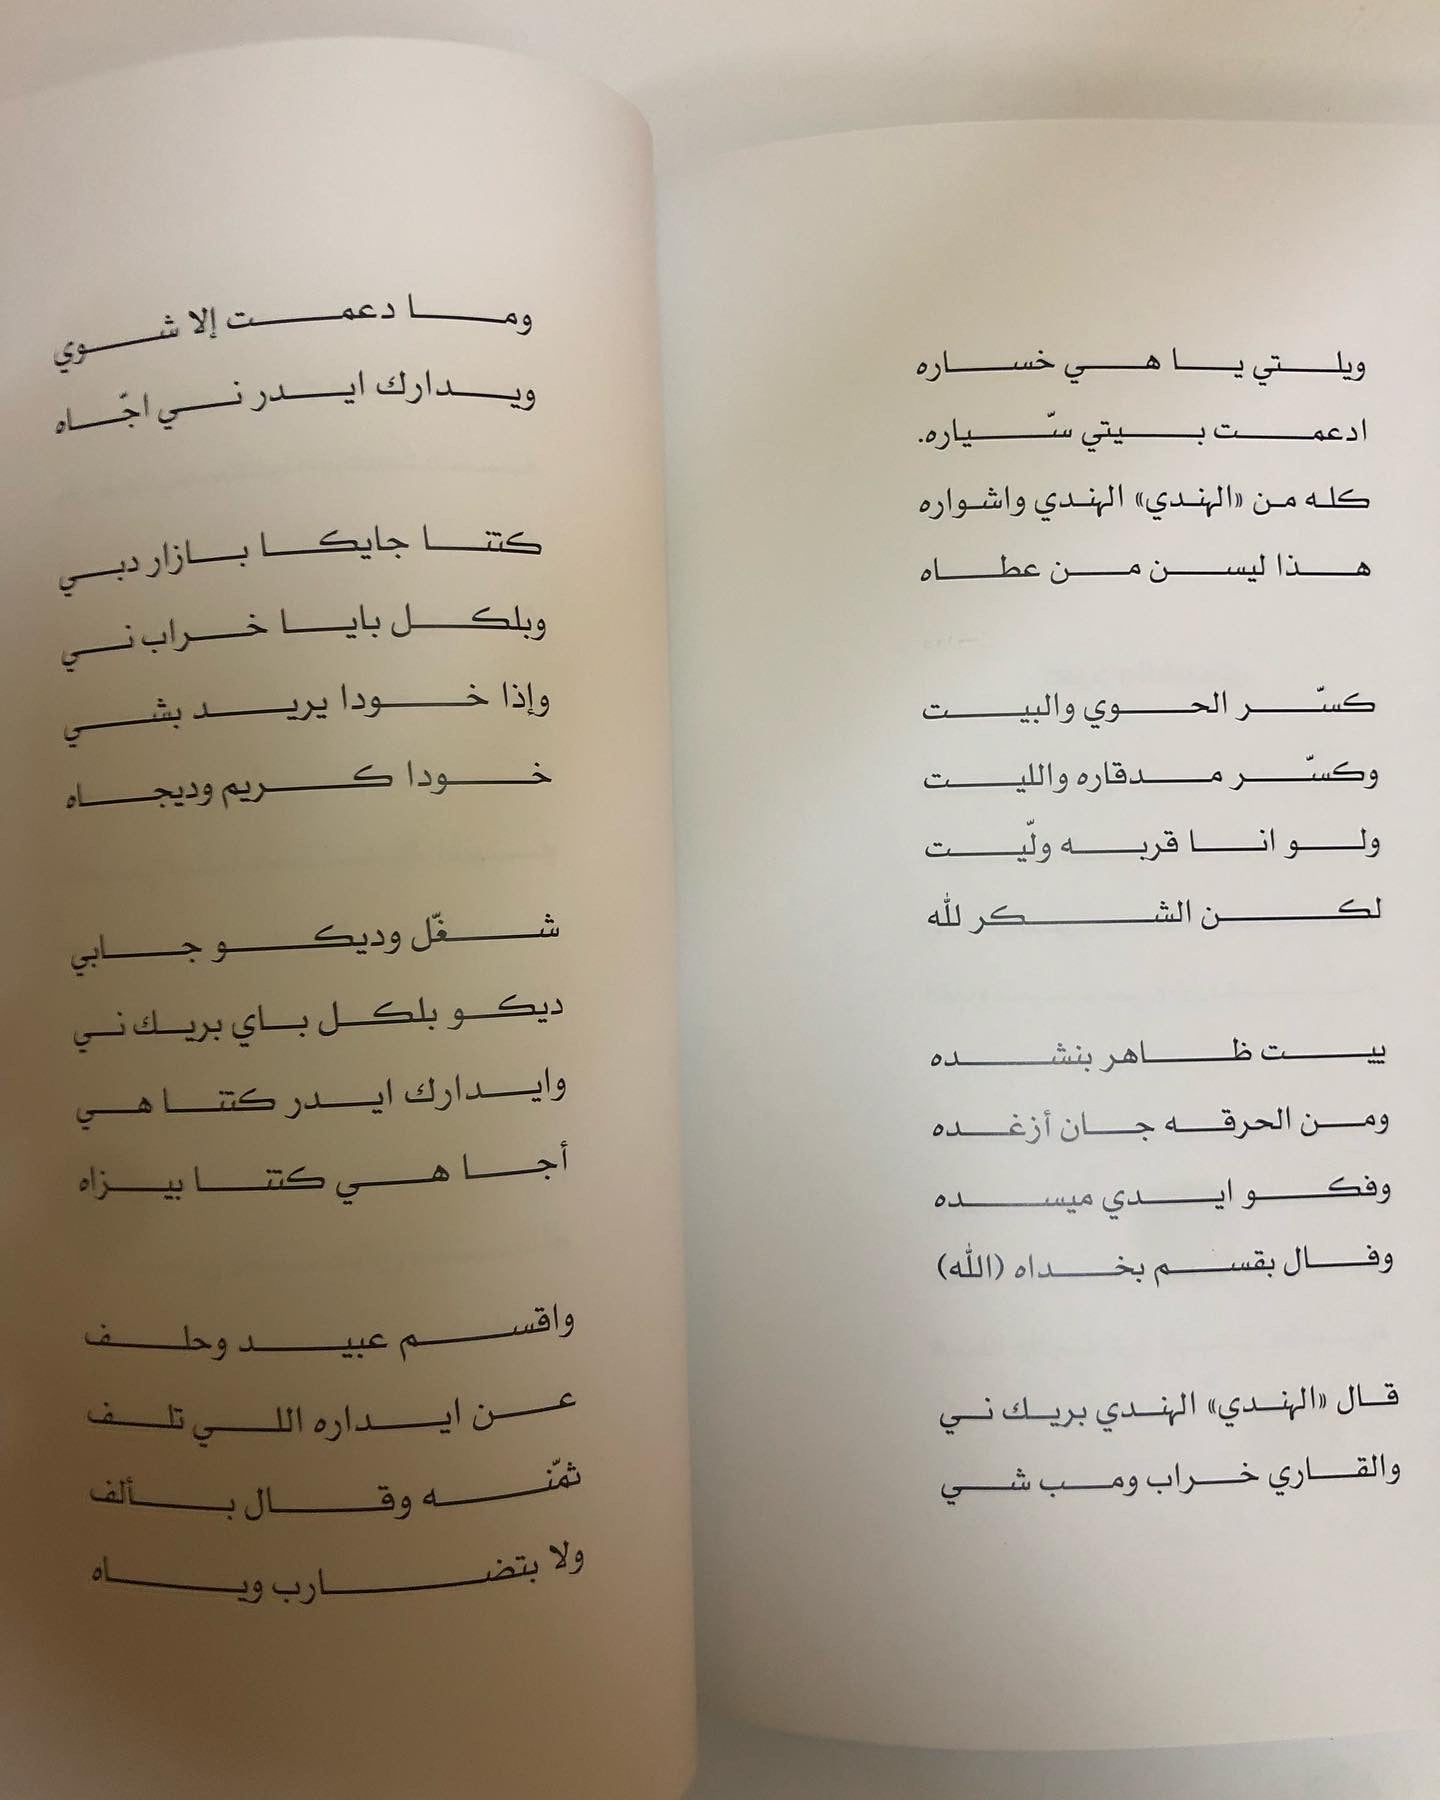 ويلتي يا هي خساره
ادعمت بيتي سّياره.
كله من «الهندي» الهندي واشواره
هذا ليسن من عطاه
كسّر الحوي والبيت
وكسّر مدقاره والليت
ولو انا قربه ولّيت
لكن الشكر لله
ييت ظاهر بنشده
ومن الحرقه جان أزغده
وفكو ايدي ميسده
وفال بقسم بخداه (الله)
قال «الهندي» الهندي بريك ني
والقاري خراب ومب شي
وما دعمت إلا شوي
ويدارك ايدر ني اجّاه
كتتا جايكا بازار دبي
وبلكل بايا خراب ني
وإذا خودا يريد بشي
خودا كريم وديجاه
شغّل وديكو جابي
ديكو بلكل باي بريك ني
وايدارك ايدر كتتا هي
أجا هي كتتا بيزاه
واقسم عبيد وحلف
عن ايداره اللي تلف
ثمّنه وقال بألف
ولا بتضارب وياه